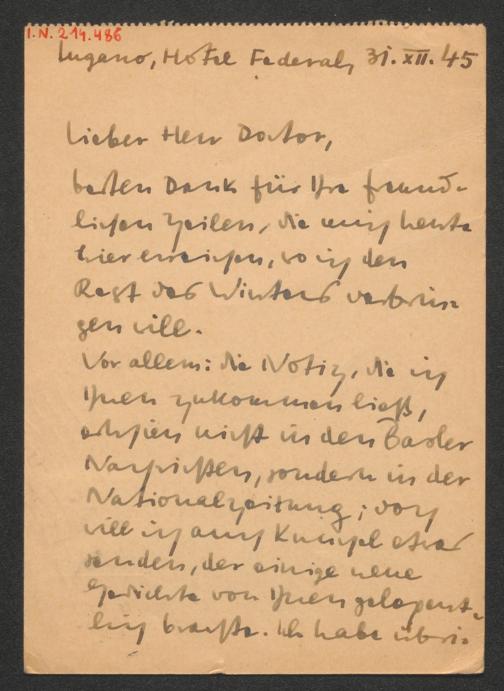 I.N. 214.486
Lugano, Hotel Federal, 31. XII. 45
Lieber Herr Doctor,
besten Dank für Ihre freund-
lichen Zeilen, die mich heute
hier erreichen, wo ich den
Rest des Winters verbrin-
gen will.
Vor allem: die Notiz, die ich
Ihnen zukommen ließ,
erschien nicht in den Basler
Nachrichten, sondern in der
Nationalzeitung; doch
will ich auch Kneipel etwas
senden, der einige neue
Gedichte von Ihnen gelegent-
lich brachte. Ich habe übri-